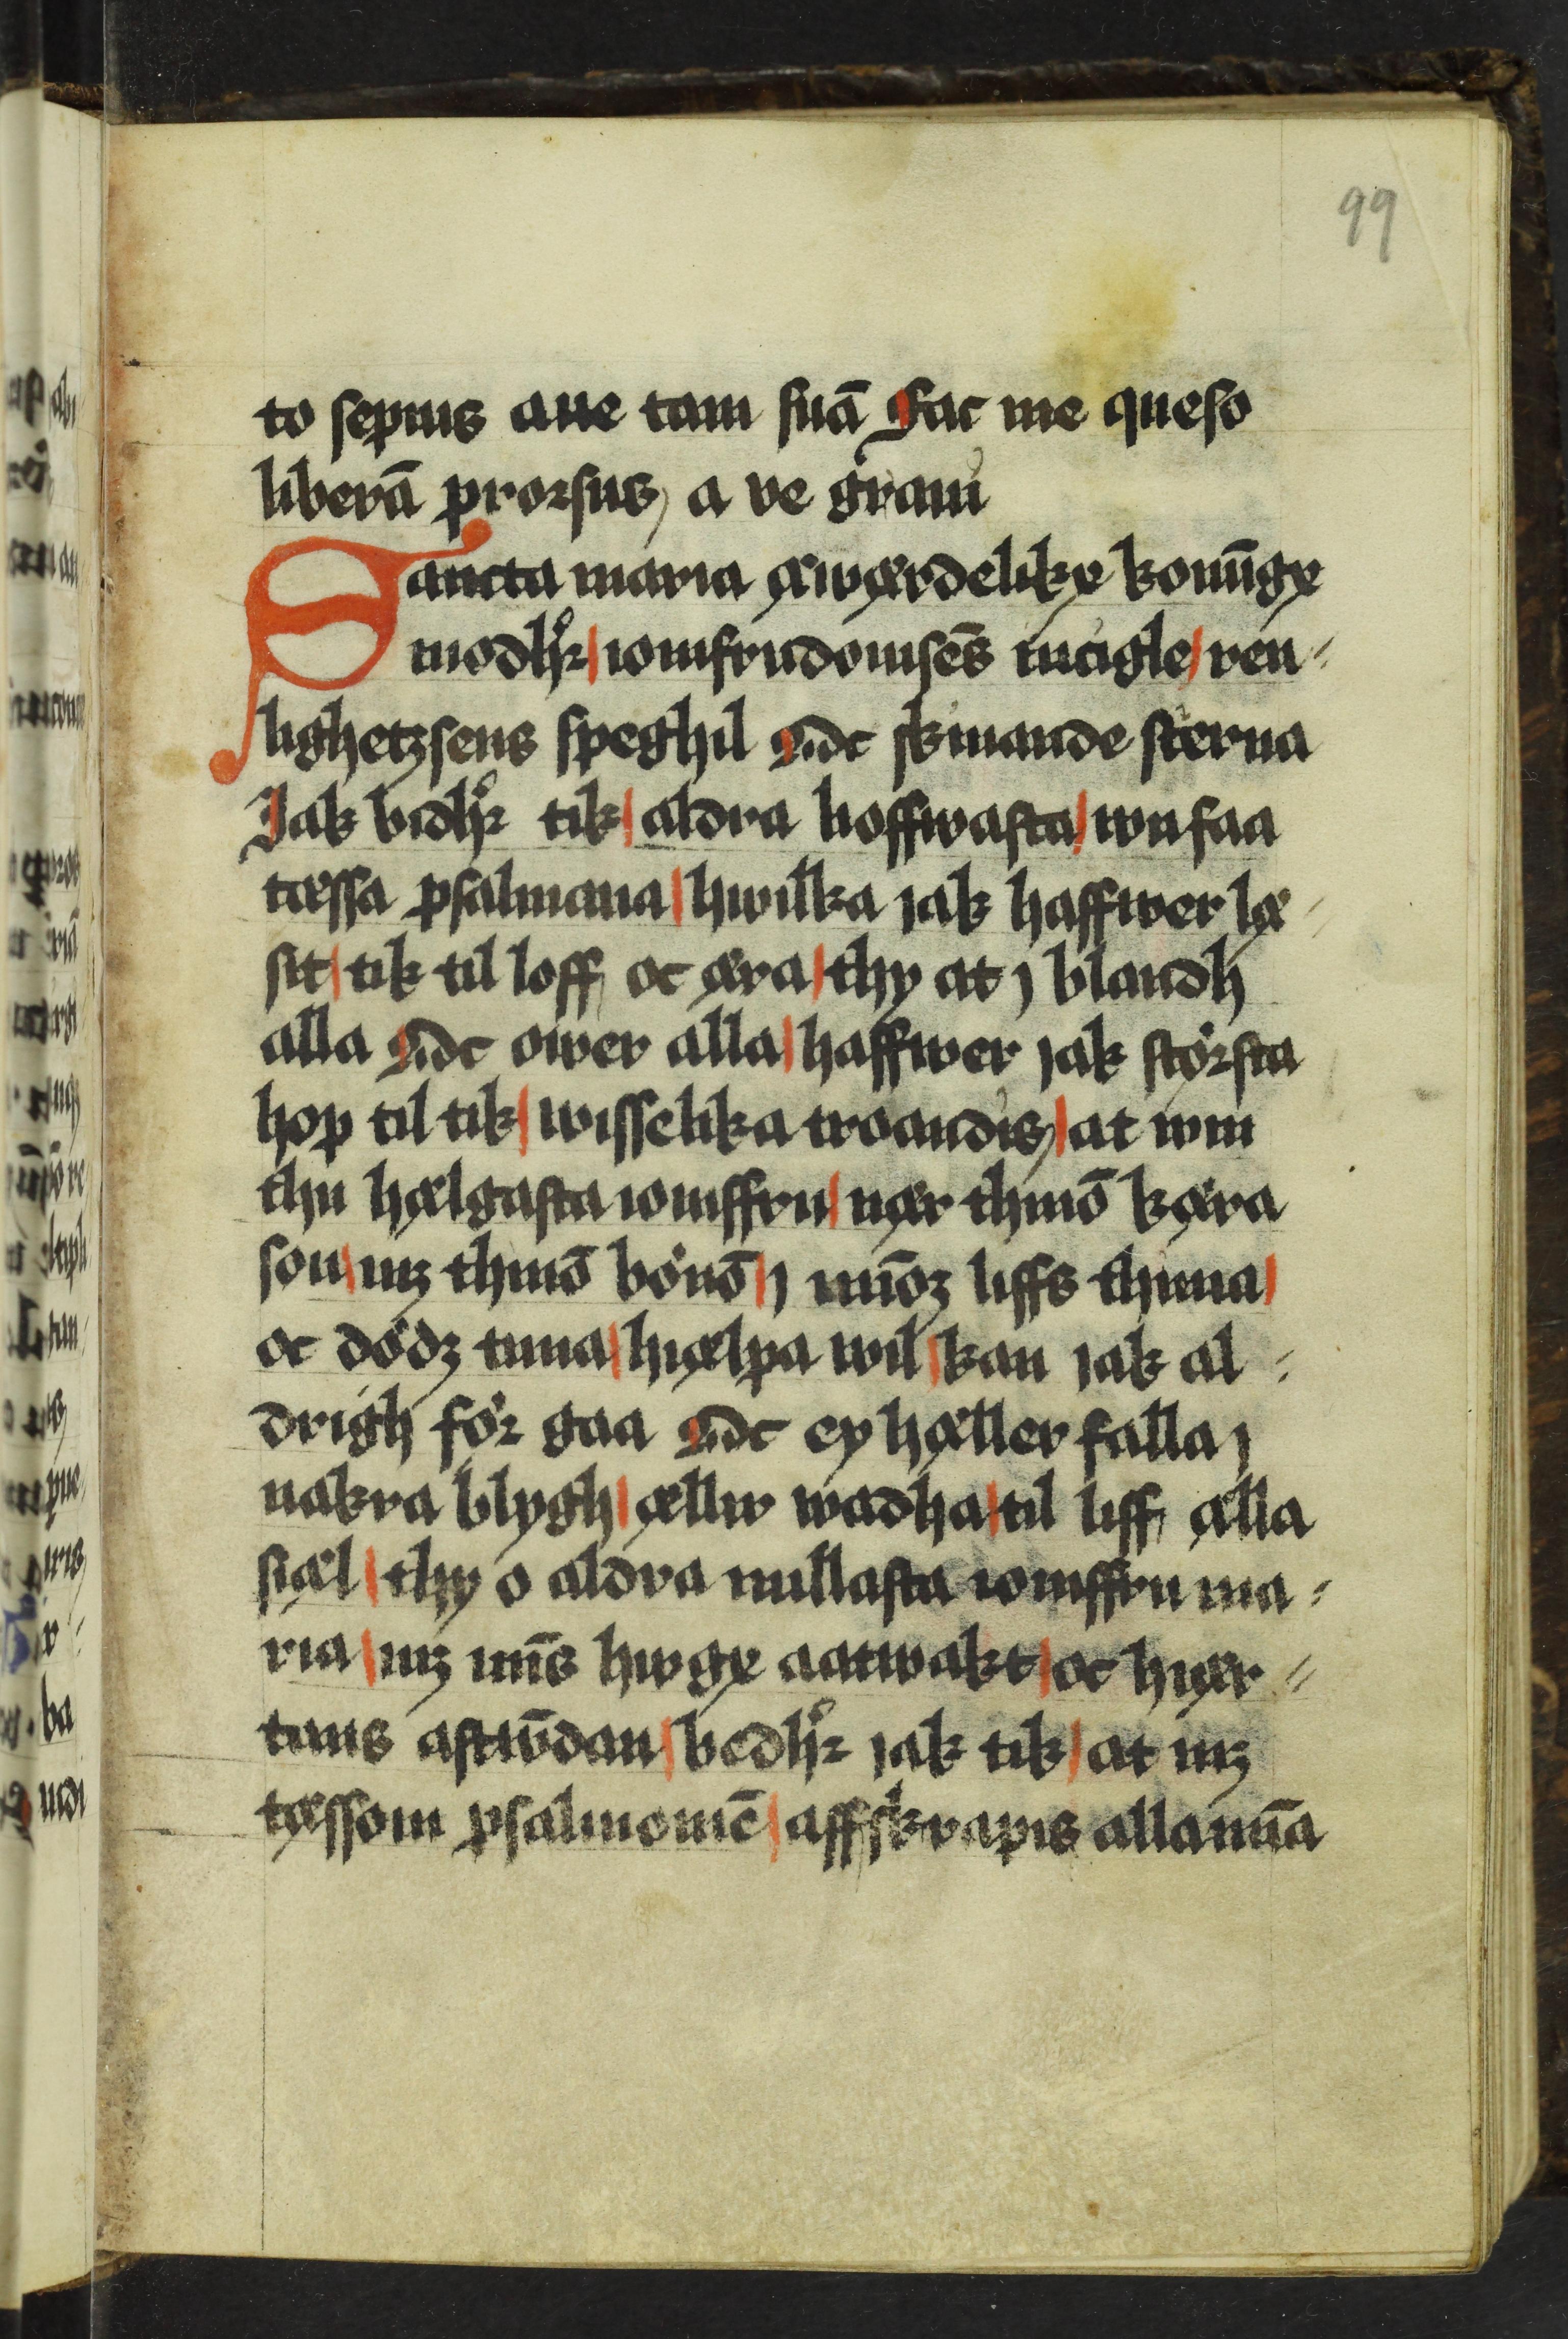 99
to sepius aue tam suā Fac me queso
liberā prorsus, a ve graui
Sancta maria æwærdelike konūgx
modhr̊ | iomfrudomsēs incigle | ren〃
lighetzsens speghil Adc skinande sterna
Jak bidhr̊ tik | aldra hoffwasta | wnfaa
tæssa psalmana | hwilka jak haffwer læ〃
sit | tik til loff oc æra | thy at j blandh
alla Adc ower alla | haffwer jak största
hop til tik | wisselika troandis, | at wm
thu hælgasta iomffru | nær thinō kæra
son | mz thinō bönō | j mnōz liffs thima |
oc dödz tima | hiælpa wil | kan jak al〃
drigh för gaa Adc ey hæller falla j
nakra blygh | ællir wadha | til liff ælla
siæl | thy o aldra millasta iomffru ma〃
ria | mz mīs hwgx aatwakt | oc hiær〃
tans astwūdan | bedhr̊ jak tik | at mz
tæssom psalmomē | affskrapis alla mīa